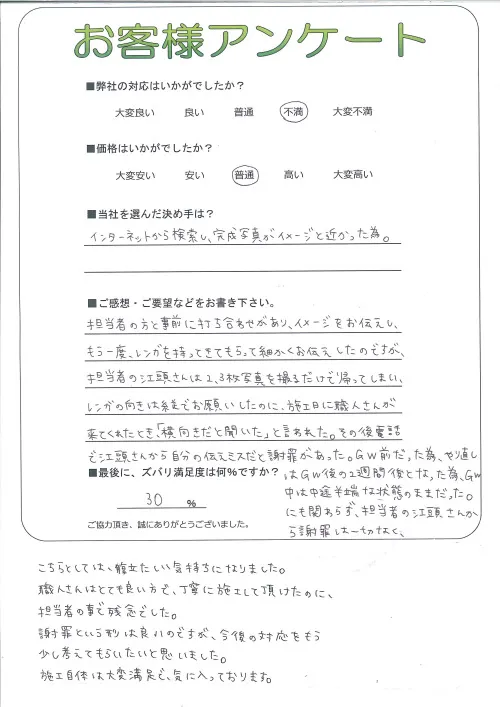 お客様アンケート
■弊社の対応はいかがでしたか？
大変良い 良い 普通 不満 大変不満
■価格はいかがでしたか？
大変安い 安い 普通 高い 大変高い
■当社を選んだ決め手は？
インターネットから検索し、完成写真がイメージと近かった為。
■ご感想・ご要望などをお書き下さい。
担当者の方と事前に打ち合わせがあり、イメージをお伝えし、
もう一度、レンガを持ってきてもらって細かくお伝えしたのですが、
担当者の江頭さんは2、3枚写真を撮るだけで帰ってしまい、
レンガの向きは縦でお願いしたのに、施工日に職人さんが
来てくれたとき、「横向きだと聞いた」と言われた。その後電話
で江頭さんから自分の伝えミスだと謝罪があった。GW前だった為、やり直し
はGW後の2週間後となった為、GW
中は中途半端な状態のままだった。
にも関わらず、担当者の江頭さんか
ら謝罪は一切なく、
■最後に、ズバリ満足度は何%ですか？
30 %
ご協力頂き、誠にありがとうございました。
こちらとしては、腹立たしい気持ちになりました。
職人さんはとても良い方で、丁寧に施工して頂けたのに、
担当者の事で残念でした。
謝罪という形は良いのですが、今後の対応をもう
少し考えてもらいたいと思いました。
施工自体は大変満足で、気に入っております。